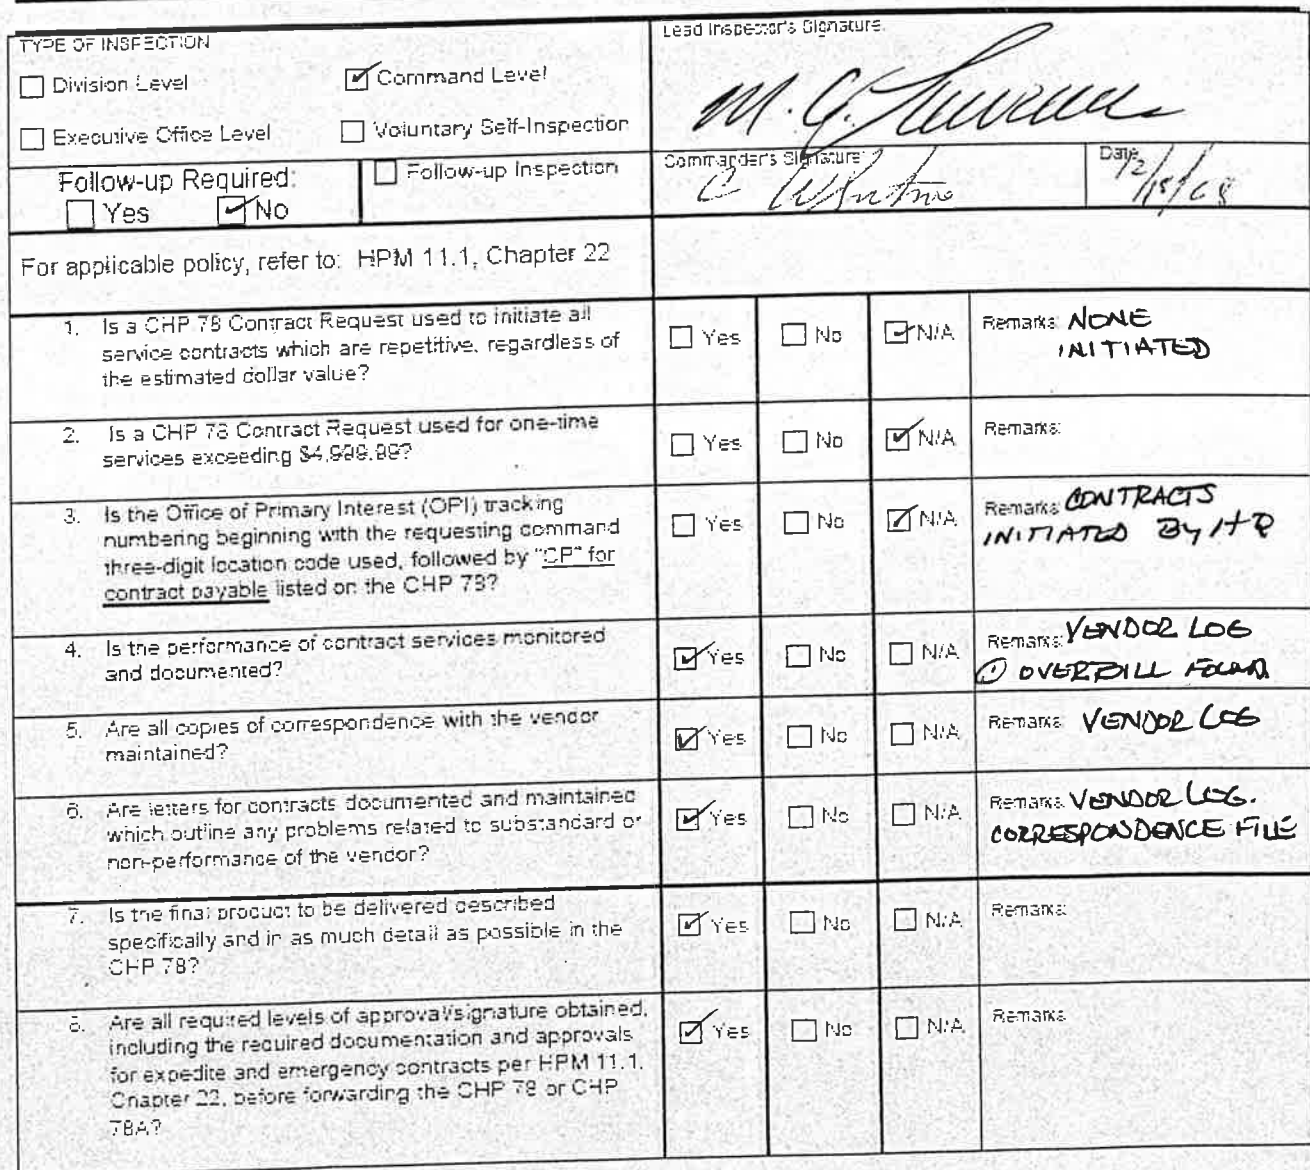 TYPE OF INSPECTION
Division Level
Command Level
Executive Office Level
Voluntary Self-Inspection
Lead Inspector's Signature:
M. G.
Follow-up Required:
Yes No
Follow-up Inspection
Commander's Signature:
C
Date
For applicable policy, refer to: HPM 11.1, Chapter 22
1. Is a CHP 78 Contract Request used to initiate all
service contracts which are repetitive, regardless of
the estimated dollar value?
Yes No N/A
Remarks: NONE
INITIATED
2. Is a CHP 78 Contract Request used for one-time
services exceeding $4,999.99?
Yes No N/A
Remarks:
3. Is the Office of Primary Interest (OPI) tracking
numbering beginning with the requesting command
three-digit location code used, followed by "CP" for
contract payable listed on the CHP 78?
Yes No N/A
Remarks: CONTRACTS
INITIATED By HQ
4. Is the performance of contract services monitored
and documented?
Yes No N/A
Remarks: VENDOR LOG
① OVERBILL FOUND.
5. Are all copies of correspondence with the vendor
maintained?
Yes No N/A
Remarks: VENDOR LOG
6. Are letters for contracts documented and maintained
which outline any problems related to substandard or
non-performance of the vendor?
Yes No N/A
Remarks: VENDOR LOG.
CORRESPONDENCE FILE
7. Is the final product to be delivered described
specifically and in as much detail as possible in the
CHP 78?
Yes No N/A
Remarks:
8. Are all required levels of approval/signature obtained,
including the required documentation and approvals
for expedite and emergency contracts per HPM 11.1,
Chapter 22, before forwarding the CHP 78 or CHP
78A?
Yes No N/A
Remarks: